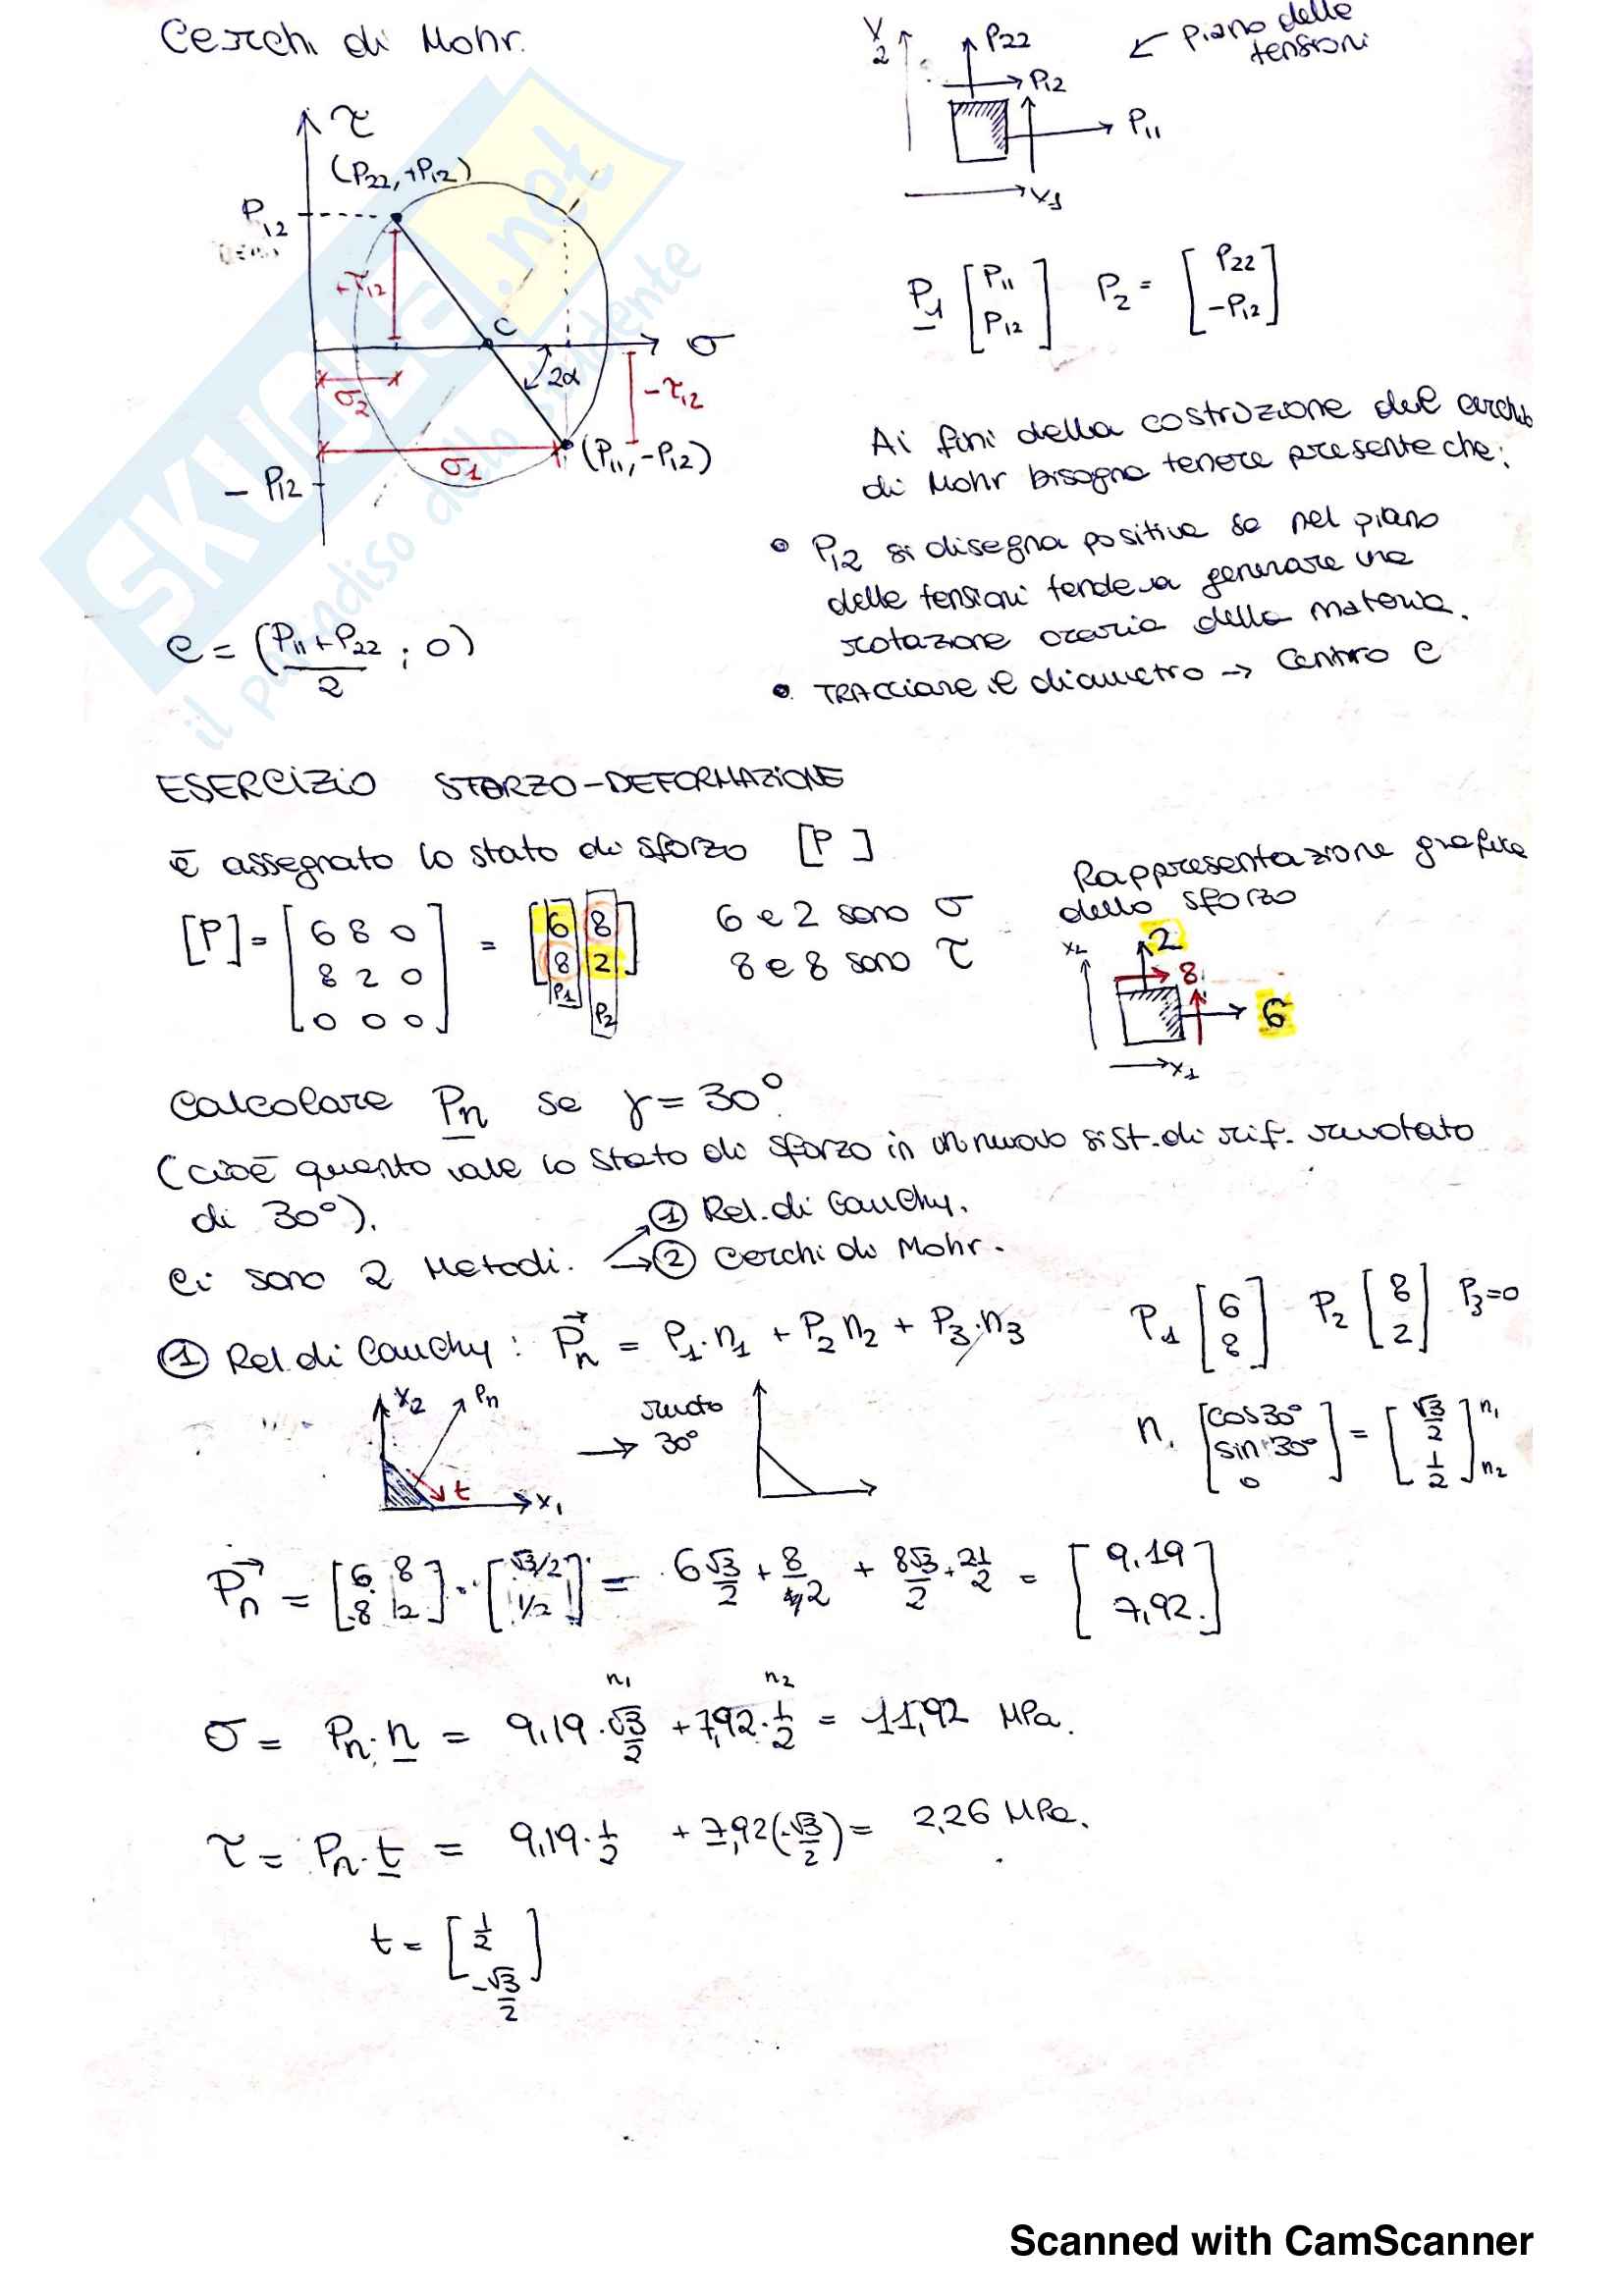 Cerchi di Mohr.
τ
(P22,+P12)
P12
+τ12
C
σ
2α
σ2
-τ12
σ1
(P11,-P12)
- P12
C = (P11+P22 / 2 ; 0)
X2
P22
P12
P11
X1
← Piano delle
tensioni
P1 [P11 P12] P2 = [P22 -P12]
Ai fini della costruzione del cerchio
di Mohr bisogna tenere presente che:
• P12 si disegna positiva se nel piano
delle tensioni tende a generare una
rotazione oraria della materia.
• TRACCiare il diametro → Centro C
ESERCiZiO STORZO-DEFORMAZiONE
È assegnato lo stato di sforzo [P]
[P]= [6 8 0
8 2 0
0 0 0] = [6 8
8 2]
P1
P2
6 e 2 sono σ
8 e 8 sono τ
Rappresentazione grafica
dello sforzo
X2
2
8
6
X1
Calcolare Pn se γ = 30°
(cioè quanto vale lo stato di sforzo in un nuovo sist. di rif. ruotato
di 30°).
Ci sono 2 Metodi.
① Rel. di Cauchy.
② Cerchi di Mohr.
① Rel. di Cauchy : Pn = P1·n1 + P2 n2 + P3·n3
P1 [6 8] P2 [8 2] P3=0
X2
Pn
t
X1
ruoto
→ 30°
n. [cos30° sin 30° 0] = [√3/2 1/2] n1 n2
Pn = [6 8
8 2] · [√3/2 1/2] = 6√3/2 + 8/2 + 8√3/2 + 2 1/2 = [9,19 7,92]
n1 n2
σ = Pn·n = 9,19·√3/2 + 7,92·1/2 = 11,92 MPa.
τ = Pn·t = 9,19·1/2 + 7,92(-√3/2) = 2,26 MPa.
t = [1/2 -√3/2]
SKUOLA.net
il paradiso dello studente
Scanned with CamScanner